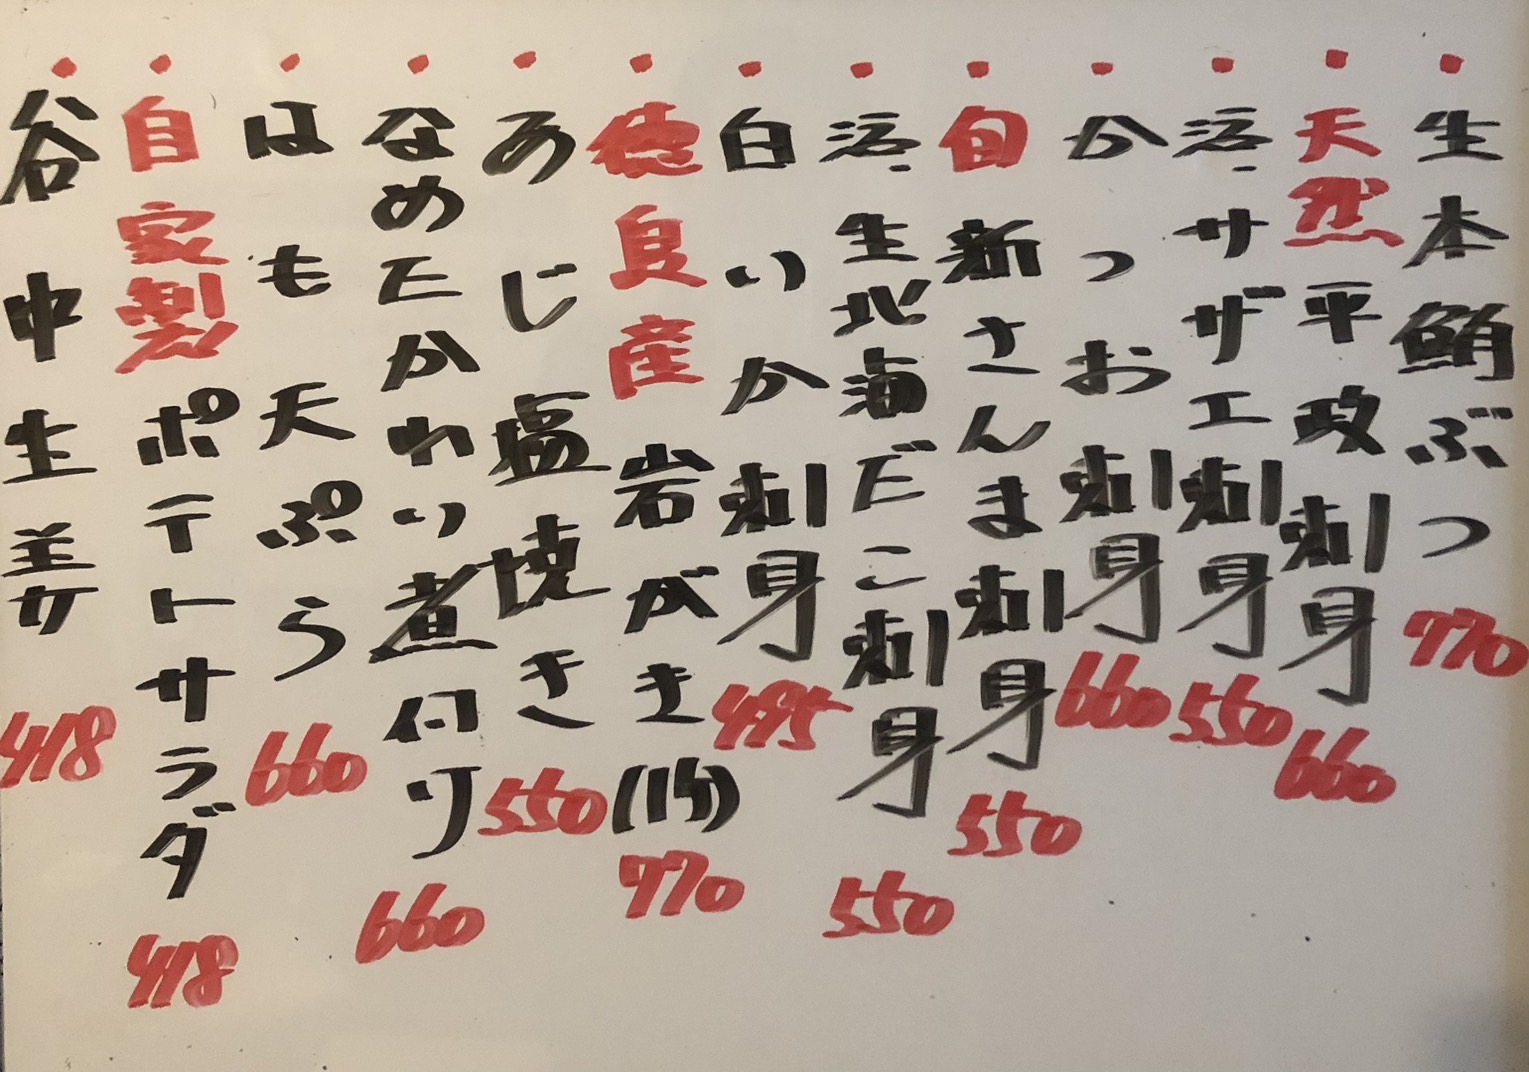 ・生本鮪ぶつ 770
・天然平政刺身 660
・活サザエ刺身 550
・かつお刺身 660
・旬新さんま刺身 550
・活生北海だこ刺身 550
・白いか刺身 495
・徳良産岩がき(1ケ) 770
・あじ塩焼き 550
・なめたかれい煮付り 660
・はも天ぷら 660
・自家製ポテトサラダ 418
・谷中生姜 418